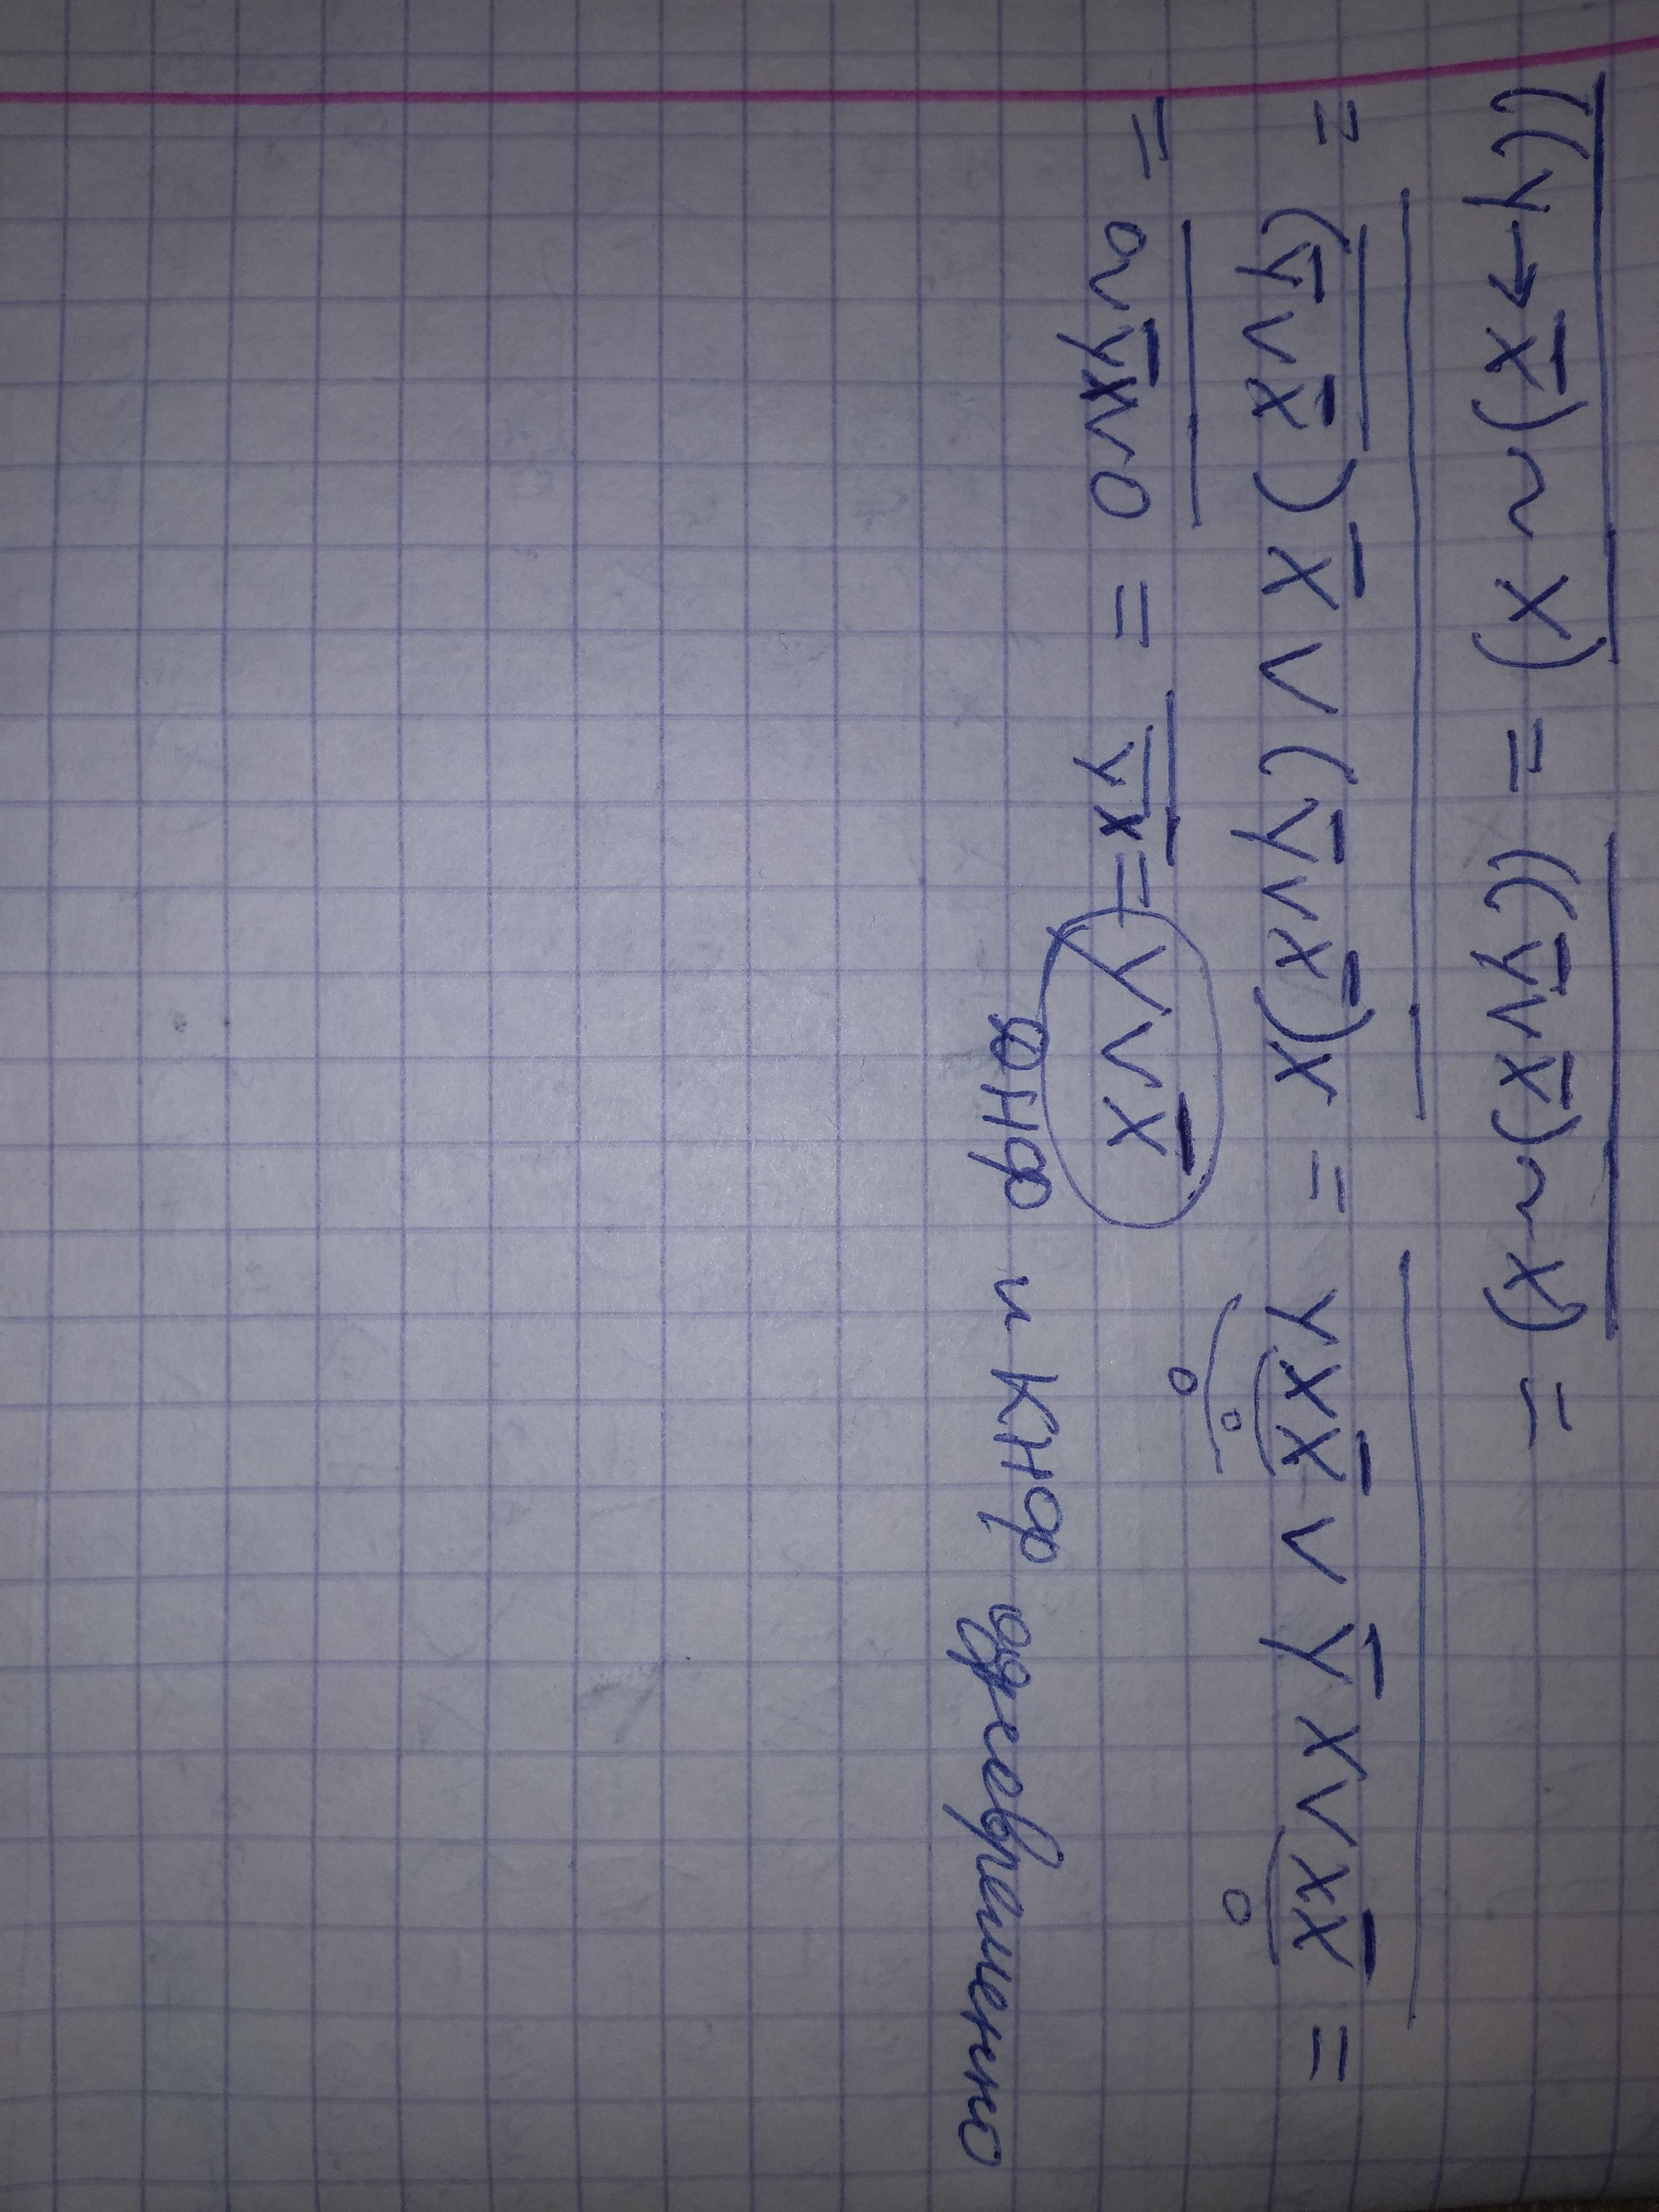 ((y→x̅)~x)‾ = ((y̅∨x̅)~x)‾ =
= ((y̅∨x̅)‾ x̅ ∨ (y̅∨x̅)x)‾ = (yxx̅ ∨ y̅x∨xx̅)‾ =
0 0 0
= (0∨y̅x∨0)‾ = (y̅x)‾ = y∨x̅
ДНФ и КНФ одновременно